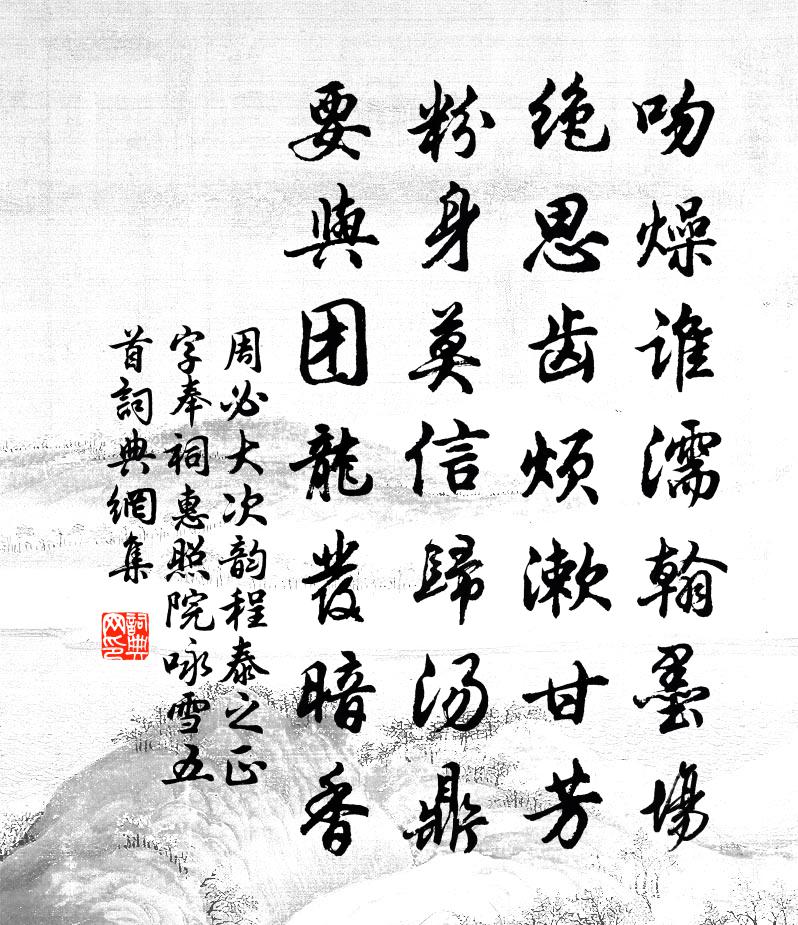 吻燥谁濡翰墨場
绝思齿烦漱甘芳
粉身莫信歸汤鼎
要與团龍發暗香
周必大次韵程泰之正
字奉祠惠照院咏雪五
首詞典網集
詞典网印